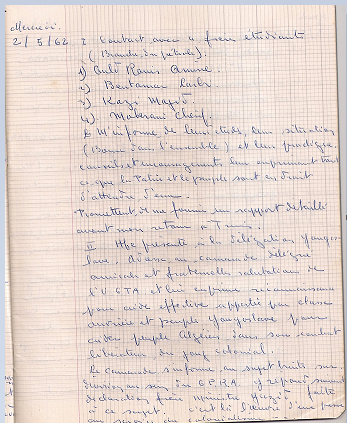 Mercredi
2/5/62 I Contact avec 4 frères étudiants
(Branche du pétrole).
1) Ould Ramis Amine.
2) Bentamar Larbi.
3) Kazi Majid.
4) Cherif.
M'informe de leurs étude, leur situation
(Bonne dans l'ensemble) et leur prodigue
conseils et encouragements leur exprimant tout
ce que la Patrie et le peuple sont en droit
d'attendre d'eux.
Promettent de me fournir un rapport détaillé
avant mon retour à
II présenté à la Délégation Yougos-
lave. au camarade délégué
amicales et fraternelles salutations de
l'U G T A et lui exprime reconnaissance
pour aide effective apportée par classe
ouvrière et peuple Yougoslave pour
aider peuple Algérien dans son combat
libération du joug colonial.
Le camarade s'informe au sujet bruits sur
division au sein du G.P.R.A. y répond suivant
déclaration frère ministre Yazid faite
à ce sujet. c'est là l'œuvre d'une presse
au service du colonialisme